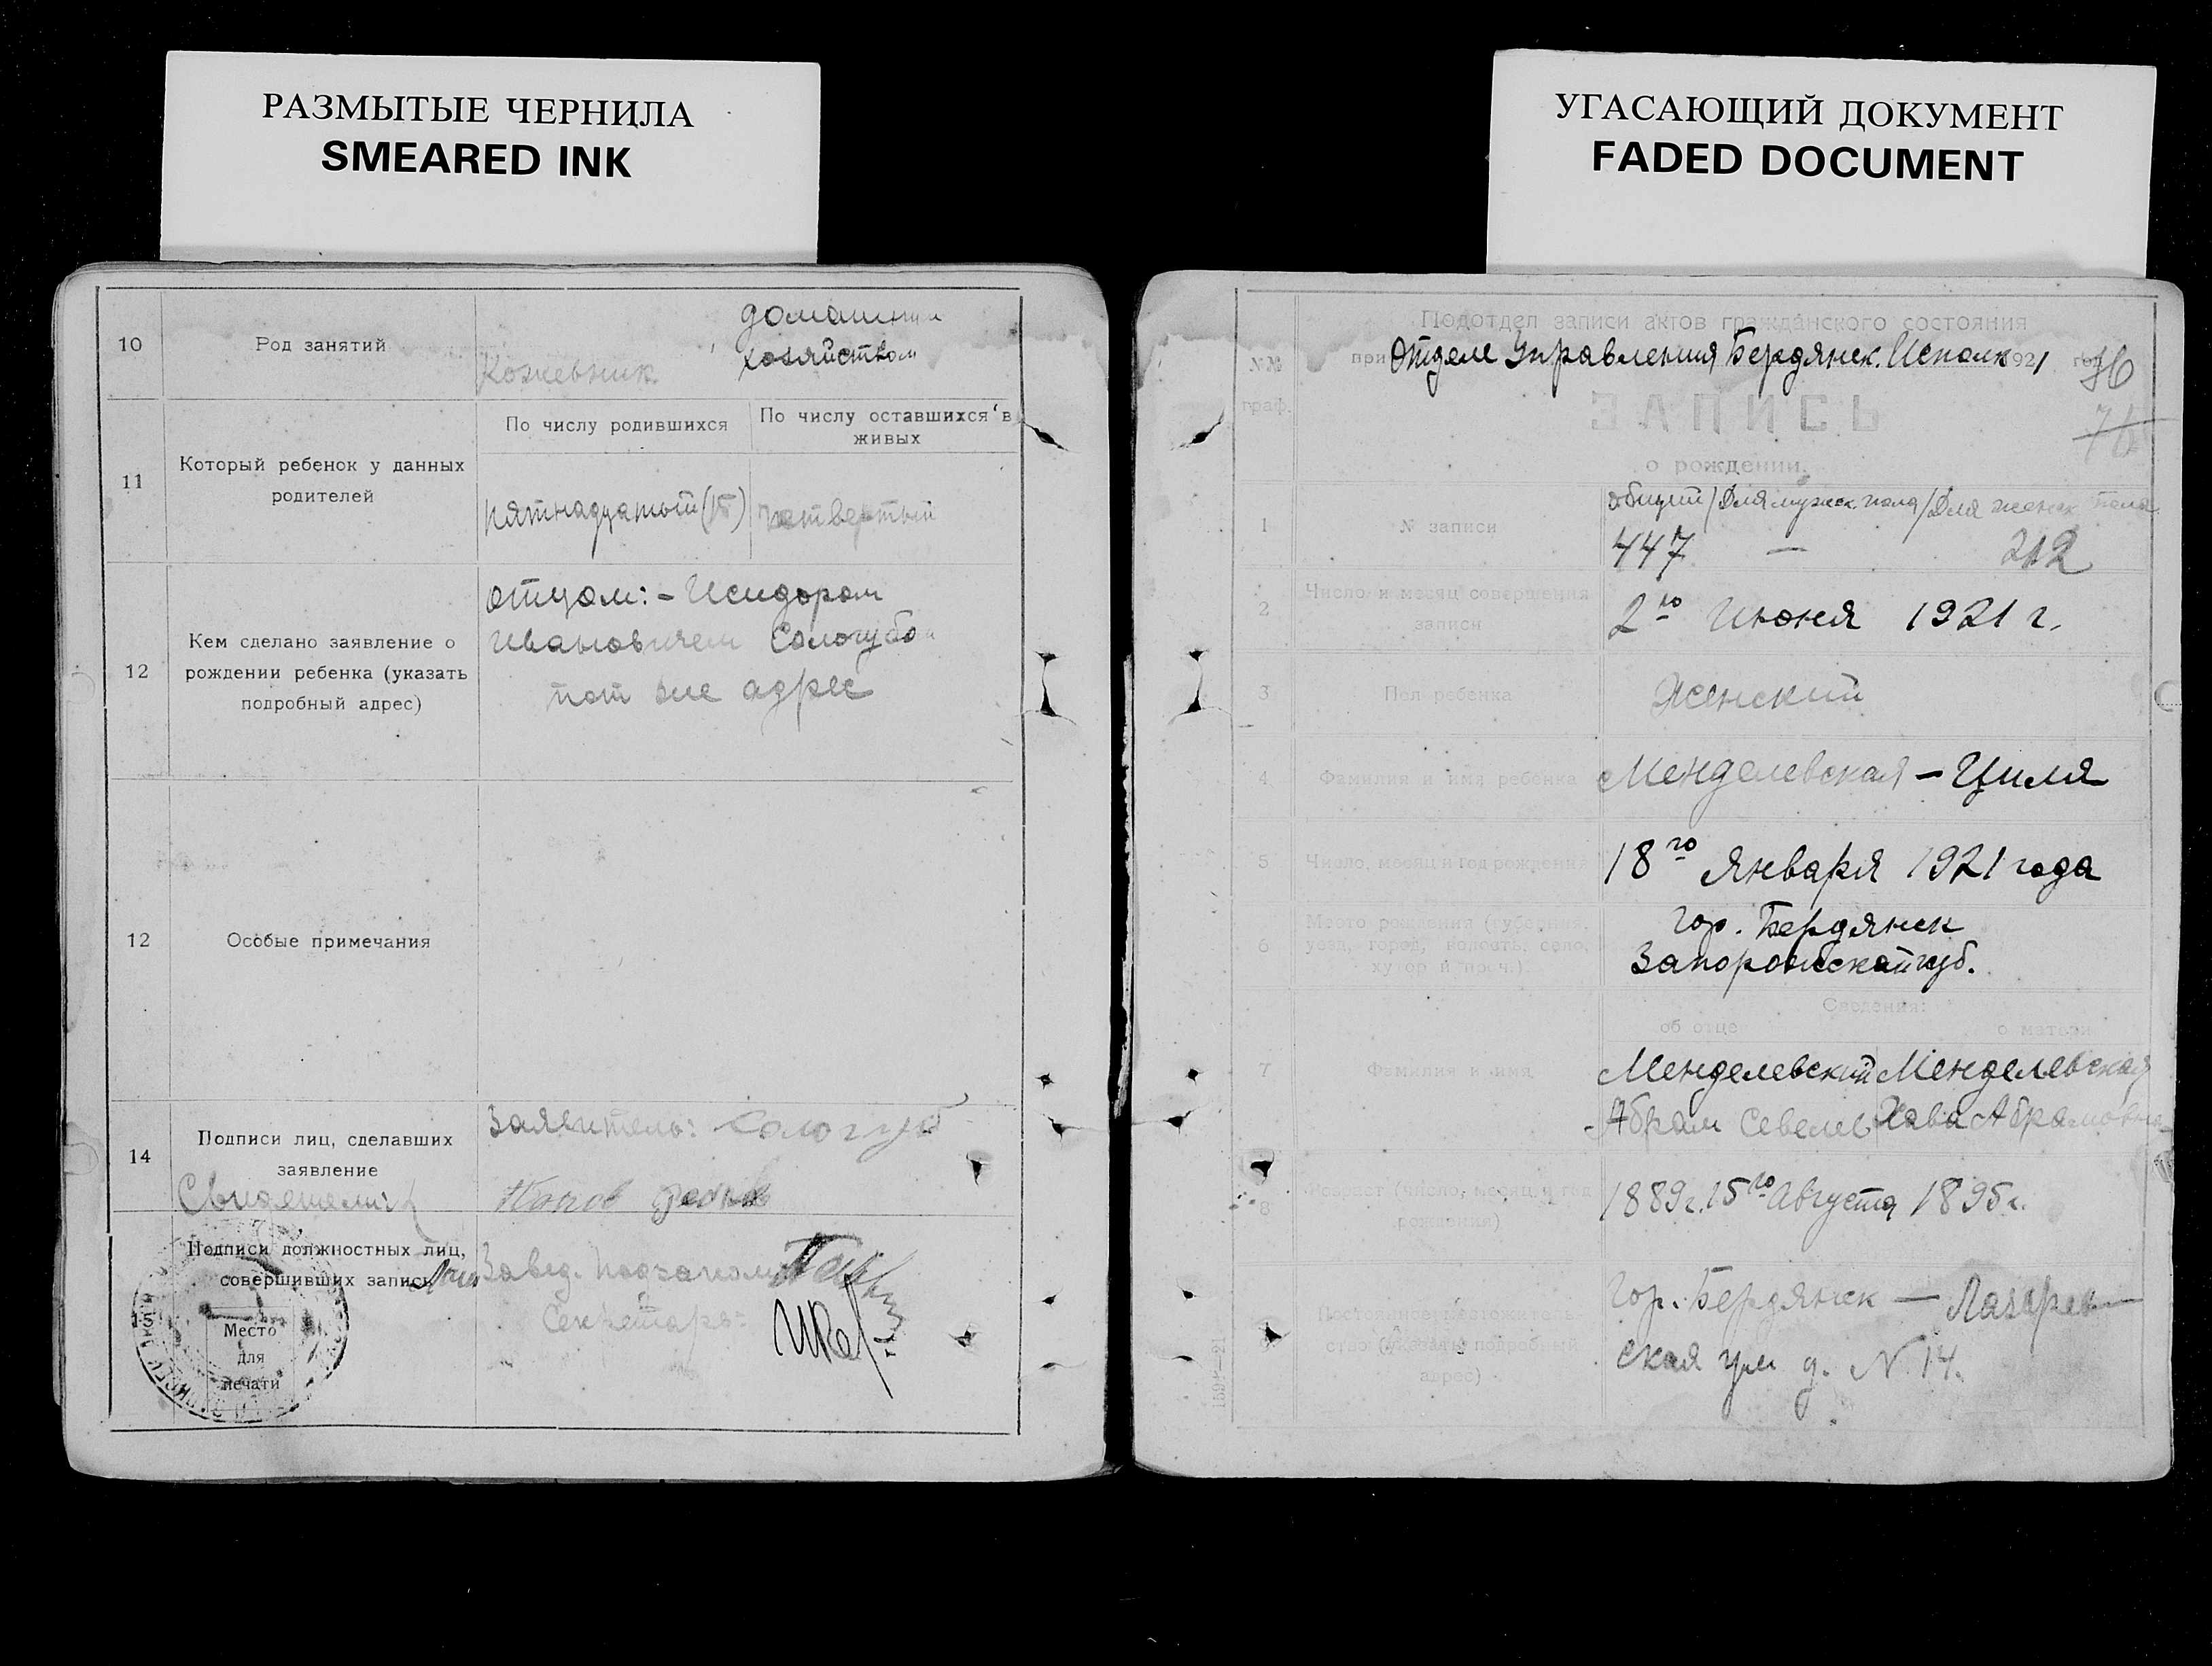 РАЗМЫТЫЕ ЧЕРНИЛА
SMEARED INK
10
Род занятий
Кожевник
домашним
хозяйством
11
Который ребенок у данных
родителей
По числу родившихся
По числу оставшихся в
живых
пятнадцатый (15)
четвертый
12
Кем сделано заявление о
рождении ребенка (указать
подробный адрес)
отцом: - Исидором
Ивановичем Сологубом
тот же адрес
12
Особые примечания
14
Подписи лиц, сделавших
заявление
Свидетели:
Заявитель: Сологуб
Попов
15
Подписи должностных лиц,
совершивших запись
Место
для
печати
Завед. подзапом
Секретарь
УГАСАЮЩИЙ ДОКУМЕНТ
FADED DOCUMENT
№№
граф.
Подотдел записи актов гражданского состояния
при Отделе Управления Бердянск. Исполк 1921 год
76
ЗАПИСЬ
о рождении.
1
N записи
общий / Для мужск. пола / Для женск пола
447 — 212
2
Число и месяц совершения
записи
2го Июня 1921 г.
3
Пол ребенка
Женский
4
Фамилия и имя ребенка
Менделевская - Циля
5
Число, месяц и год рождения
18го Января 1921 года
6
Место рождения (губерния,
уезд, город, волость, село,
хутор и проч.)
гор. Бердянск
Запорожской губ.
Сведения:
об отце
о матери
7
Фамилия и имя
Менделевский
Абрам Севелев
Менделевская
Хава Абрамовна
8
Возраст (число, месяц и год
рождения)
1889г. 15го Августа
1895г.
9
Постоянное местожитель-
ство (указать подробный
адрес)
Гор. Бердянск — Лазарев-
ская ул д. N 14.